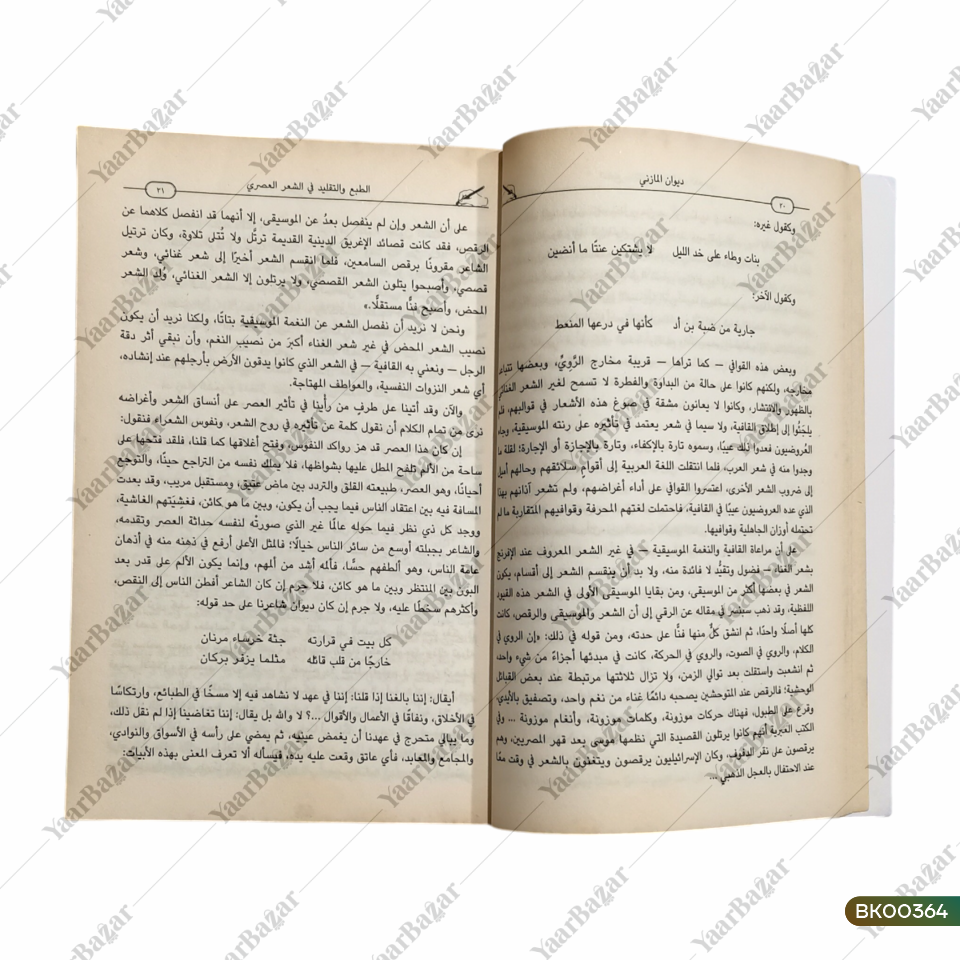 ديوان المازني
٢٠
وكقول غيره:
بنات وطاء على خد الليل لا يشتكين عنتًا ما أنضين
وكقول الآخر:
جارية من ضبة بن أد كأنها في درعها المنعط
وبعض هذه القوافي — كما تراها — قريبة مخارج الرَّوِيِّ، وبعضها تتباعد
مخارجه، ولكنهم كانوا على حالة من البداوة والفطرة لا تسمح لغير الشعر الغنائي
بالظهور والانتشار، وكانوا لا يعانون مشقة في صوغ هذه الأشعار في قوالبهم، فلم
يلجَئوا إلى إطلاق القافية، ولا سيما في شعر يعتمد في تأثيره على رنته الموسيقية، وجاء
العروضيون فعدوا ذلك عيبًا، وسموه تارة بالإكفاء، وتارة بالإجازة أو الإجارة؛ لقلة ما
وجدوا منه في شعر العرب، فلما انتقلت اللغة العربية إلى أقوامٍ سلائقهم وحالهم أميل
إلى ضروب الشعر الأخرى، اعتسروا القوافي على أداء أغراضهم، ولم تشعر آذانهم بهذا
الذي عده العروضيون عيبًا في القافية، فاحتملت لغتهم المحرفة وقوافيهم المتقاربة ما لم
تحتمله أوزان الجاهلية وقوافيها.
على أن مراعاة القافية والنغمة الموسيقية — في غير الشعر المعروف عند الإفرنج
بشعر الغناء — فضول وتقيُّد لا فائدة منه، ولا بد أن ينقسم الشعر إلى أقسام، يكون
الشعر في بعضها أكثر من الموسيقى، ومن بقايا الموسيقى الأولى في الشعر هذه القيود
اللفظية، وقد ذهب سبنسر في مقاله عن الرقي إلى أن الشعر والموسيقى والرقص، كانت
كلها أصلًا واحدًا، ثم انشق كلٌّ منها فنًّا على حدته، ومن قوله في ذلك: «إن الروي في
الكلام، والروي في الصوت، والروي في الحركة، كانت في مبدئها أجزاءً من شيء واحد،
ثم انشعبت واستقلت بعد توالي الزمن، ولا تزال ثلاثتها مرتبطة عند بعض القبائل
الوحشية؛ فالرقص عند المتوحشين يصحبه دائمًا غناء من نغم واحد، وتصفيق بالأيدي،
وقرع على الطبول، فهناك حركات موزونة، وكلمات موزونة، وأنغام موزونة … وفي
الكتب العبرية أنهم كانوا يرتلون القصيدة التي نظمها موسى بعد قهر المصريين، وهم
يرقصون على نقر الدفوف، وكان الإسرائيليون يرقصون ويتغنون بالشعر في وقت معًا
عند الاحتفال بالعجل الذهبي …
الطبع والتقليد في الشعر العصري
٢١
على أن الشعر وإن لم ينفصل بعدُ عن الموسيقى، إلا أنهما قد انفصل كلاهما عن
الرقص، فقد كانت قصائد الإغريق الدينية القديمة ترتَّل ولا تُتلى تلاوة، وكان ترتيل
الشاعر مقرونًا برقص السامعين، فلما انقسم الشعر أخيرًا إلى شعر غنائي، وشعر
قصصي، وأصبحوا يتلون الشعر القصصي، ولا يرتلون إلا الشعر الغنائي، وُلد الشعر
المحض، وأصبح فنًّا مستقلًّا.»
ونحن لا نريد أن نفصل الشعر عن النغمة الموسيقية بتاتًا، ولكنا نريد أن يكون
نصيب الشعر المحض في غير شعر الغناء أكبرَ من نصيب النغم، وأن نبقي أثر دقة
الرجل — ونعني به القافية — في الشعر الذي كانوا يدقون الأرض بأرجلهم عند إنشاده،
أي شعر النزوات النفسية، والعواطف المهتاجة.
والآن وقد أتينا على طرفٍ من رأينا في تأثير العصر على أنساق الشعر وأغراضه
نرى من تمام الكلام أن نقول كلمة عن تأثيره في روح الشعر، ونفوس الشعراء فنقول:
إن كان هذا العصر قد هز رواكد النفوس، وفتح أغلاقها كما قلنا، فلقد فتحها على
ساحة من الألم تلفح المطل عليها بشواظها، فلا يملك نفسه من التراجع حينًا، والتوجع
أحيانًا، وهو العصر، طبيعته القلق والتردد بين ماضٍ عتيق، ومستقبل مريب، وقد بعدت
المسافة فيه بين اعتقاد الناس فيما يجب أن يكون، وبين ما هو كائن، فغشِيَتهم الغاشية،
ووجد كل ذي نظر فيما حوله عالمًا غير الذي صورتْه لنفسه حداثة العصر وتقدمه،
والشاعر بجبلته أوسع من سائر الناس خيالًا؛ فالمثل الأعلى أرفع في ذهنه منه في أذهان
عامة الناس، وهو ألطفهم حسًّا، فألمه أشد من ألمهم، وإنما يكون الألم على قدر بعد
البون بين المنتظر وبين ما هو كائن، فلا جرم إن كان الشاعر أفطن الناس إلى النقص،
وأكثرهم سخطًا عليه، ولا جرم إن كان ديوان شاعرنا على حد قوله:
كل بيت في قرارته جثة خرساء مرنان
خارجًا من قلب قائله مثلما يزفر بركان
أيقال: إننا بالغنا إذا قلنا: إننا في عهد لا نشاهد فيه إلا مسخًا في الطبائع، وارتكاسًا
في الأخلاق، ونفاقًا في الأعمال والأقوال …؟ لا والله بل يقال: إننا تغاضينا إذا لم نقل ذلك،
وما يبالي متحرج في عهدنا أن يغمض عينيه، ثم يمضي على رأسه في الأسواق والنوادي،
والمجامع والمعابد، فأي عاتق وقعت عليه يده، فيسأله ألا تعرف المعنى بهذه الأبيات:
YaarBazar
BK00364